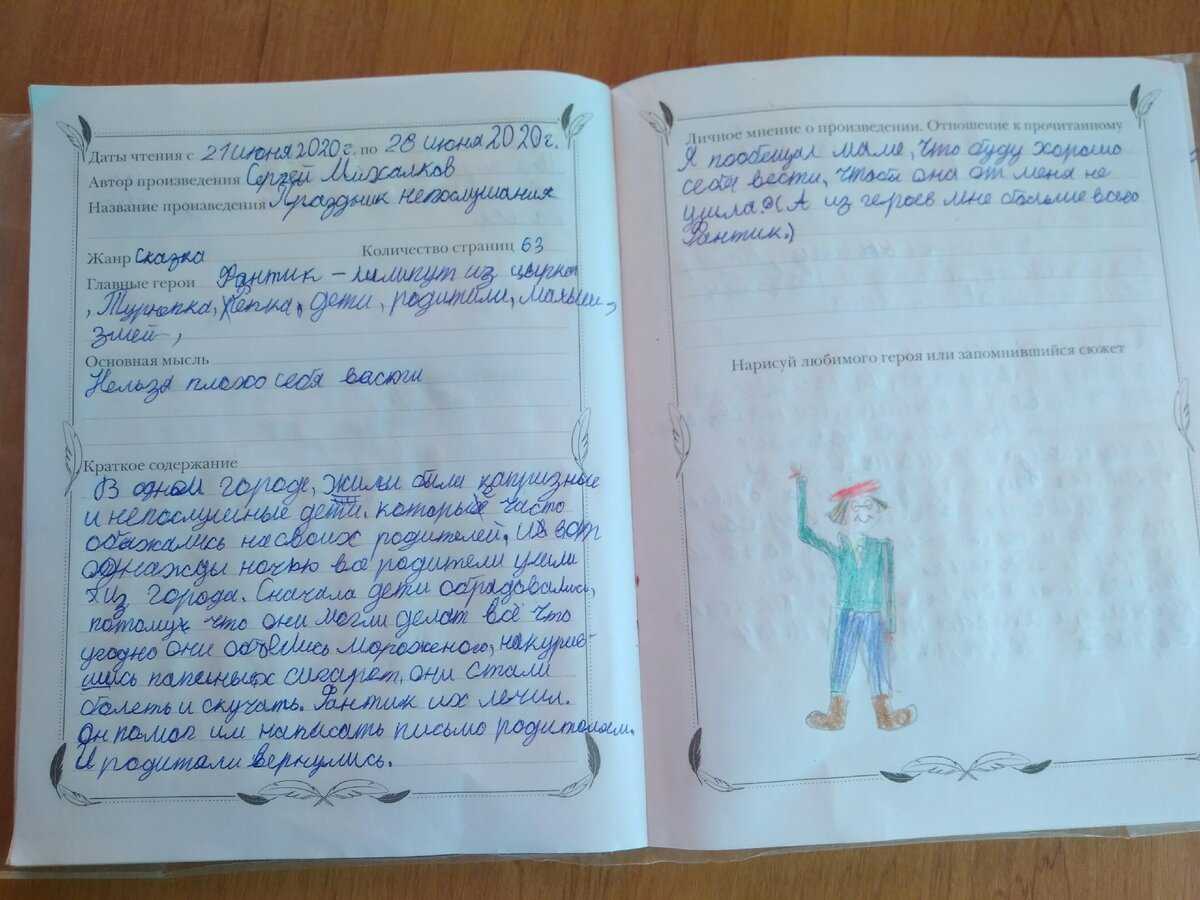 Даты чтения с 21 июня 2020 г. по 28 июня 2020 г.
Автор произведения Сергей Михалков
Название произведения Праздник непослушания
Жанр Сказка Количество страниц 63
Главные герои Фантик – лилипут из цирка
, Турнепка, Репка, дети, родители, малыш,
змей,
Основная мысль
Нельзя плохо себя вести
Краткое содержание
В одном городе, жили были капризные
и непослушные дети. которые часто
обежались на своих родителей, и вот
однажды ночью все родители ушли
из города. Сначала дети обрадовались,
потому что они могли делат всё что
угодно они объелись мороженого, накурив-
шись папиных сигарет, они стали
болеть и скучать. Фантик их лечил.
Он помог им написать письмо родителям.
И родители вернулись.
Личное мнение о произведении. Отношение к прочитанному
Я пообещал маме, что буду хорошо
себя вести, чтоб она от меня не
ушла. (А из героев мне больше всего
Фантик.)
Нарисуй любимого героя или запомнившийся сюжет